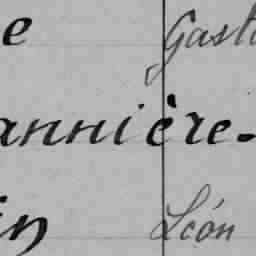 e Gast
annière-
in Léon